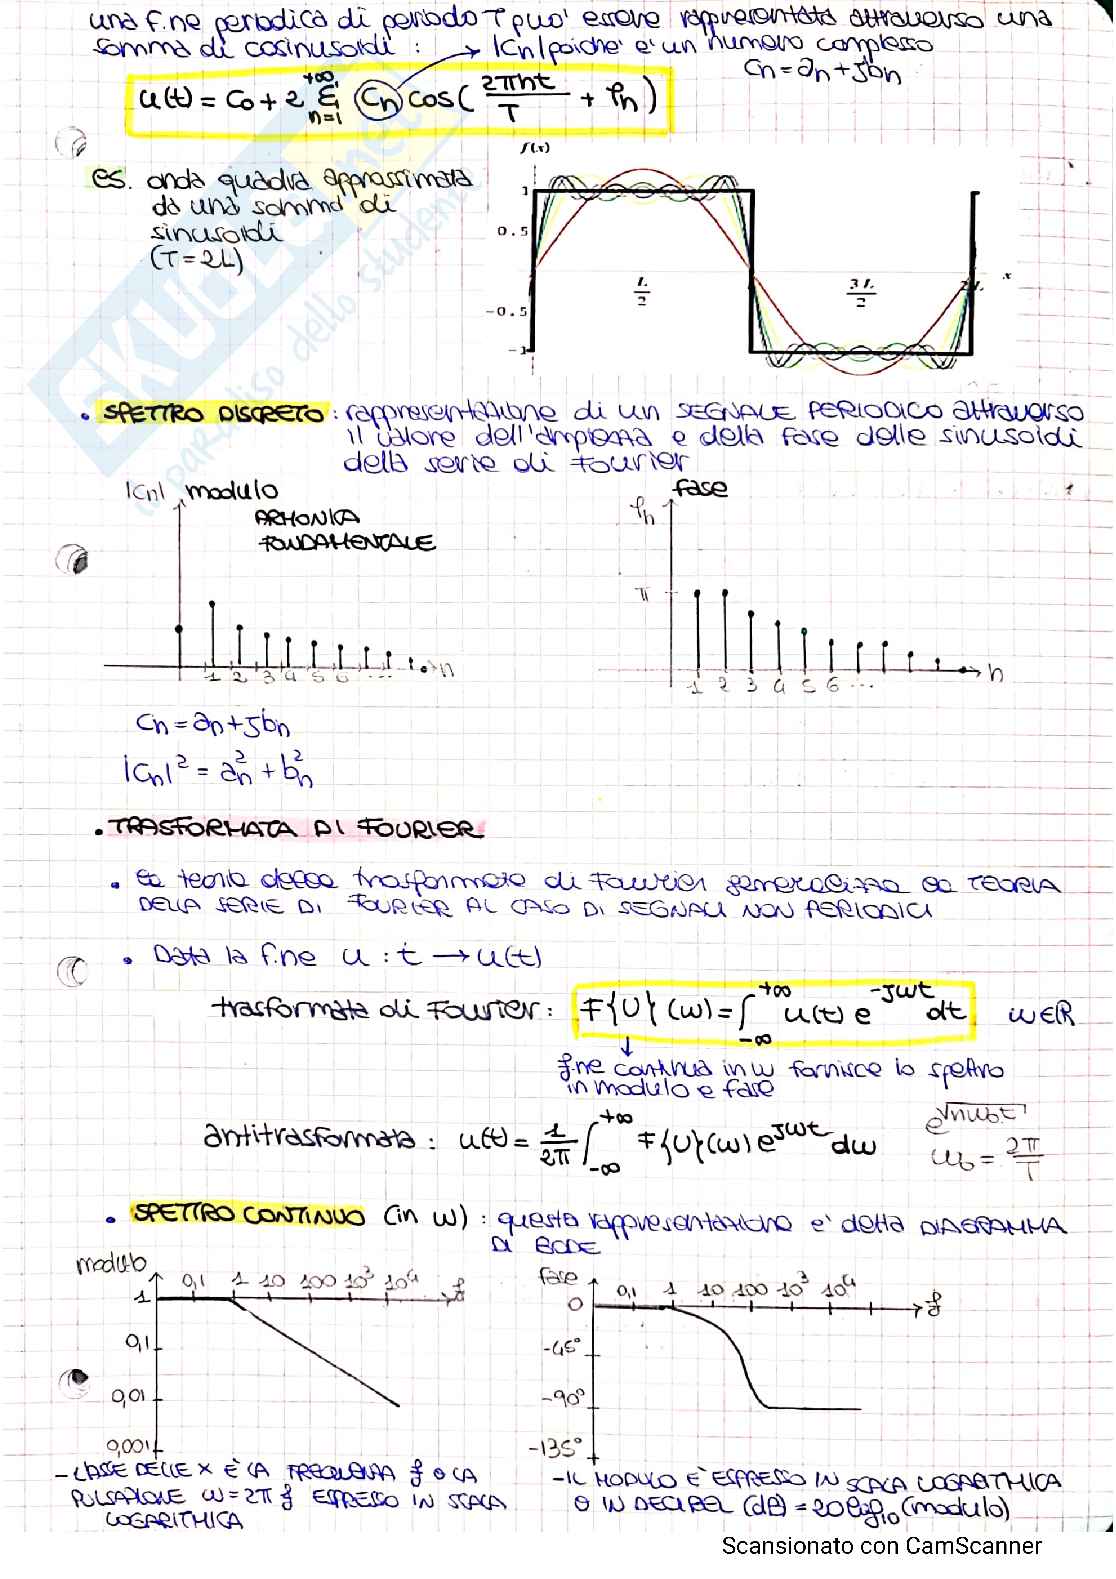 una f.ne periodica di periodo T può essere rappresentata attraverso una
somma di cosinusoidi : → |Cn| poiché è un numero complesso
Cn = an + jbn
u(t) = C0 + 2 Σ n=1 +∞ Cn cos( 2πnt / T + φn )
es. onda quadra approssimata
da una somma di
sinusoidi
(T = 2L)
f(x)
1
0.5
-0.5
-1
L/2
3L/2
2L
x
SKUOLA.net
il paradiso dello studente
• SPETTRO DISCRETO : rappresentazione di un SEGNALE PERIODICO attraverso
il valore dell'ampiezza e della fase delle sinusoidi
della serie di Fourier
|Cn| modulo
ARMONICA
FONDAMENTALE
1 2 3 4 5 6 ... n
fase
φn
π
1 2 3 4 5 6 ... n
Cn = an + jbn
|Cn|² = an² + bn²
• TRASFORMATA DI FOURIER
• la teoria della trasformata di Fourier generalizza la TEORIA
DELLA SERIE DI FOURIER AL CASO DI SEGNALI NON PERIODICI
• Data la f.ne u : t → u(t)
trasformata di Fourier : F{U}(ω) = ∫ -∞ +∞ u(t) e^-jωt dt ω∈R
↓
f.ne continua in ω fornisce lo spettro
in modulo e fase
antitrasformata : u(t) = 1/2π ∫ -∞ +∞ F{U}(ω) e^jωt dω
ω0 = 2π/T
• SPETTRO CONTINUO (in ω) : questa rappresentazione è detta DIAGRAMMA
DI BODE
modulo
0,1 1 10 100 10³ 10⁴ f
1
0,1
0,01
0,001
fase
0,1 1 10 100 10³ 10⁴ f
0
-45°
-90°
-135°
- L'ASSE DELLE X È LA FREQUENZA f O LA
PULSAZIONE ω = 2π f ESPRESSO IN SCALA
LOGARITMICA
- IL MODULO È ESPRESSO IN SCALA LOGARITHMICA
O IN DECIBEL (dB) = 20 log10 (modulo)
Scansionato con CamScanner